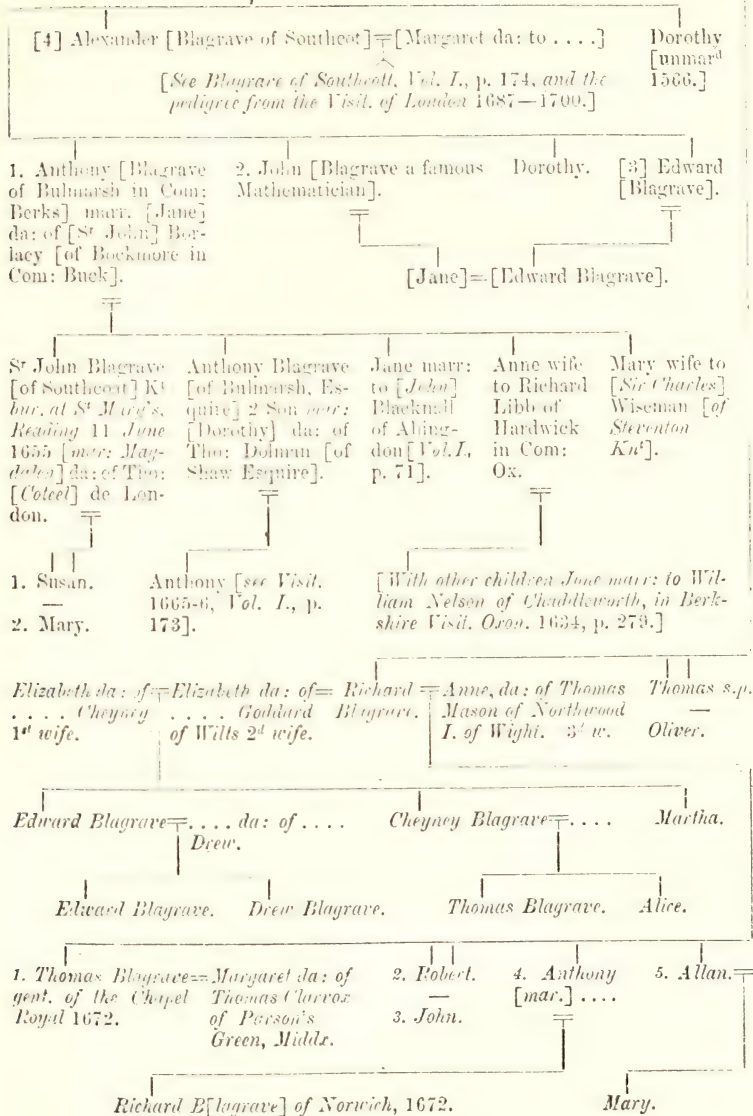 [4] Alexander [Blagrave of Southcot] = [Margaret da: to . . . .]
Dorothy
[unmar^d
1566.]
[See Blagrave of Southcott, Vol. I., p. 174, and the
pedigree from the Visit. of London 1687—1700.]
1. Anthony [Blagrave
of Bulmarsh in Com:
Berks] marr. [Jane]
da: of [S^r John] Bor-
lacy [of Bockmore in
Com: Buck].
2. John [Blagrave a famous
Mathematician].
Dorothy.
[3] Edward
[Blagrave].
[Jane] = [Edward Blagrave].
S^r John Blagrave
[of Southcoat] K^t
bur. at S^t Mary's,
Reading 11 June
1655 [mar: Mag-
dalen] da: of Tho:
[Coteel] de Lon-
don.
Anthony Blagrave
[of Bulmarsh, Es-
quire] 2 Son marr:
[Dorothy] da: of
Tho: Dolman [of
Shaw Esquire].
Jane marr:
to [John]
Blacknall
of Abing-
don [Vol. I.,
p. 71].
Anne wife
to Richard
Libb of
Hardwick
in Com:
Ox.
Mary wife to
[Sir Charles]
Wiseman [of
Steventon
Kn^t].
1. Susan.
—
2. Mary.
Anthony [see Visit.
1665-6, Vol. I., p.
173].
[With other children Jane marr: to Wil-
liam Nelson of Chaddleworth, in Berk-
shire Visit. Oxon. 1634, p. 279.]
Elizabeth da: of
. . . . Cheyney
1^st wife.
= Elizabeth da: of
. . . . Goddard
of Wilts 2^d wife.
= Richard
Blagrave.
= Anne, da: of Thomas
Mason of Northwood
I. of Wight. 3^d w.
Thomas s.p.
—
Oliver.
Edward Blagrave = . . . . da: of . . . .
Drew.
Cheyney Blagrave = . . . .
Martha.
Edward Blagrave. Drew Blagrave.
Thomas Blagrave. Alice.
1. Thomas Blagrave
gent. of the Chapel
Royal 1672.
= Margaret da: of
Thomas Clarrox
of Parson's
Green, Middx.
2. Robert.
—
3. John.
4. Anthony
[mar.] . . . .
5. Allan. =
Richard B[lagrave] of Norwich, 1672.
Mary.